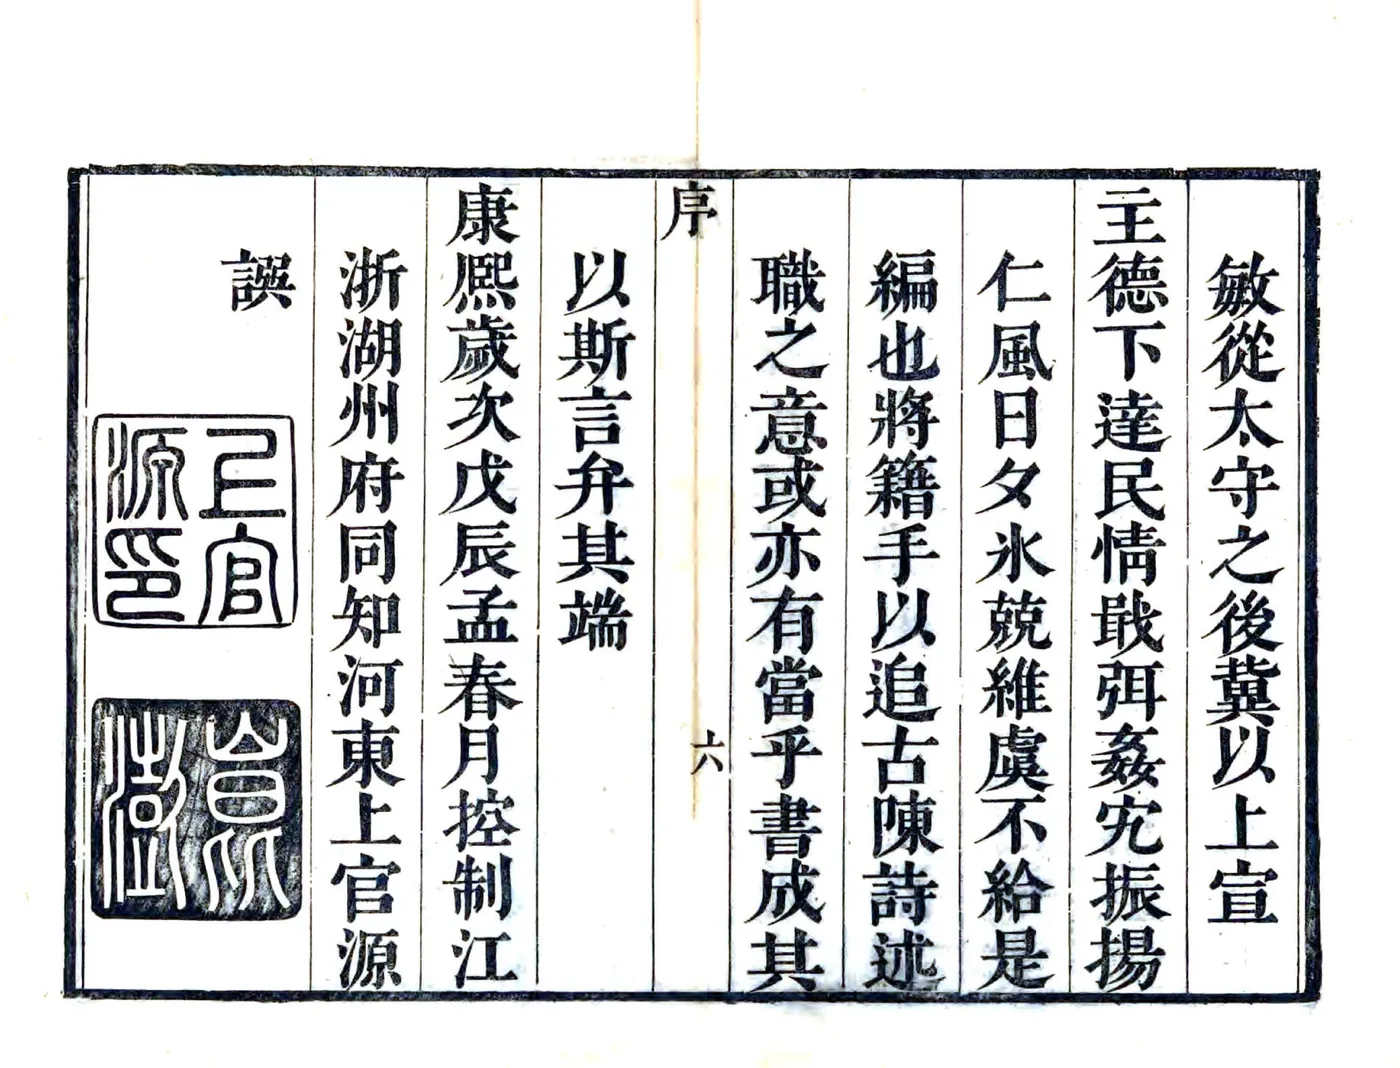 敏從太守之後冀以上宣
主德下達民情戢弭姦宄振揚
仁風日夕氷兢維虞不給是
編也將籍手以追古陳詩述
職之意或亦有當乎書成其
序
六
以斯言弁其端
康熙歲次戊辰孟春月控制江
浙湖州府同知河東上官源
譔
上官源印